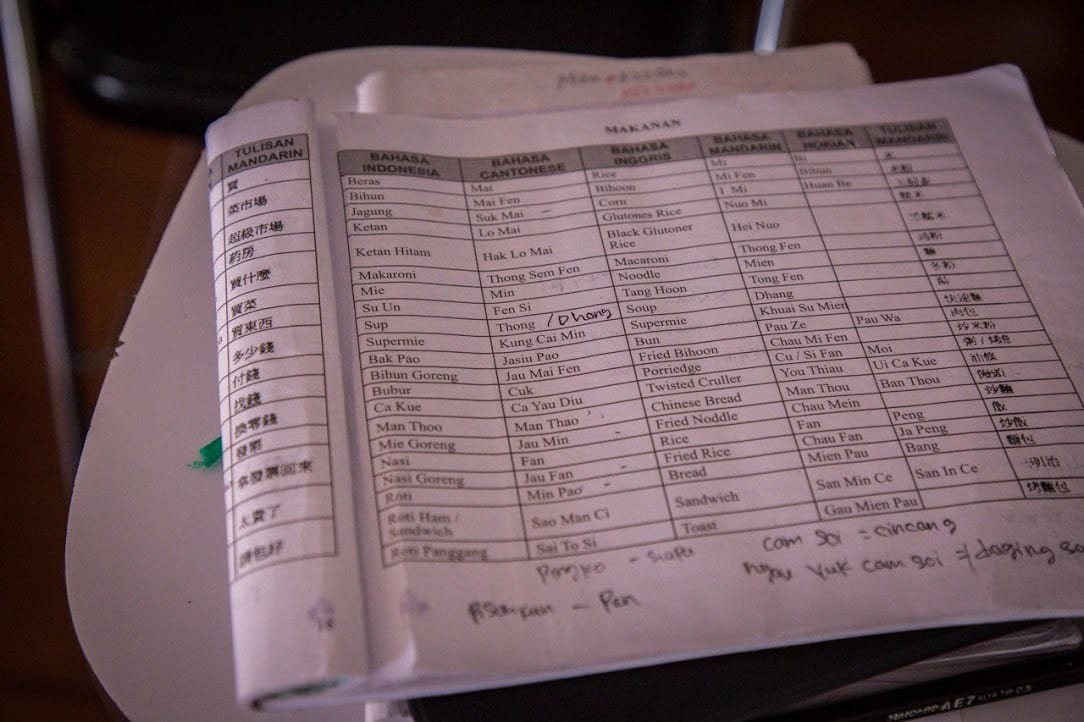 TULISAN
MANDARIN
買
菜市場
超級市場
葯房
買什麼
買菜
買東西
多少錢
付錢
找錢
換零錢
發票
拿發票回來
太貴了
請包好
19
MAKANAN
BAHASA INDONESIA BAHASA CANTONESE BAHASA INGGRIS BAHASA MANDARIN BAHASA HOKIAN TULISAN MANDARIN
Beras Mai Rice Mi 米
Bihun Mai Fen Bihoon Mi Fen Bihun 米粉
Jagung Suk Mai Corn I Mi Huan Be
Ketan Lo Mai Glutones Rice Nuo Mi 糯米
Ketan Hitam Hak Lo Mai Black Glutoner Rice Hei Nuo 黑糯米
Makaroni Thong Sem Fen Macaroni Thong Fen 通粉
Mie Min Noodle Mien 麵
Su Un Fen Si Tang Hoon Tong Fen 冬粉
Sup Thong /Dhong Soup Dhang
Supermie Kung Cai Min Supermie Khuai Su Mien 快速麵
Bak Pao Jasiu Pao Bun Pau Ze Pau Wa 肉包
Bihun Goreng Jau Mai Fen Fried Bihoon Chau Mi Fen 炒米粉
Bubur Cuk Porriedge Cu / Si Fan Moi 粥 /
Ca Kue Ca Yau Diu Twisted Cruller You Thiau Ui Ca Kue 油條
Man Thoo Man Thao Chinese Bread Man Thou Ban Thou
Mie Goreng Jau Min Fried Noddle Chau Mein 炒麵
Nasi Fan Rice Fan Peng 飯
Nasi Goreng Jau Fan Fried Rice Chau Fan Ja Peng 炒飯
Roti Min Pao Bread Mien Pau Bang 麵包
Roti Ham / Sandwich Sao Man Ci Sandwich San Min Ce San In Ce 三明治
Roti Panggang Sai To Si Toast Gau Mien Pau 烤麵包
cam soi = cincang
ngau yuk cam soi = daging
- siapa
- Pen